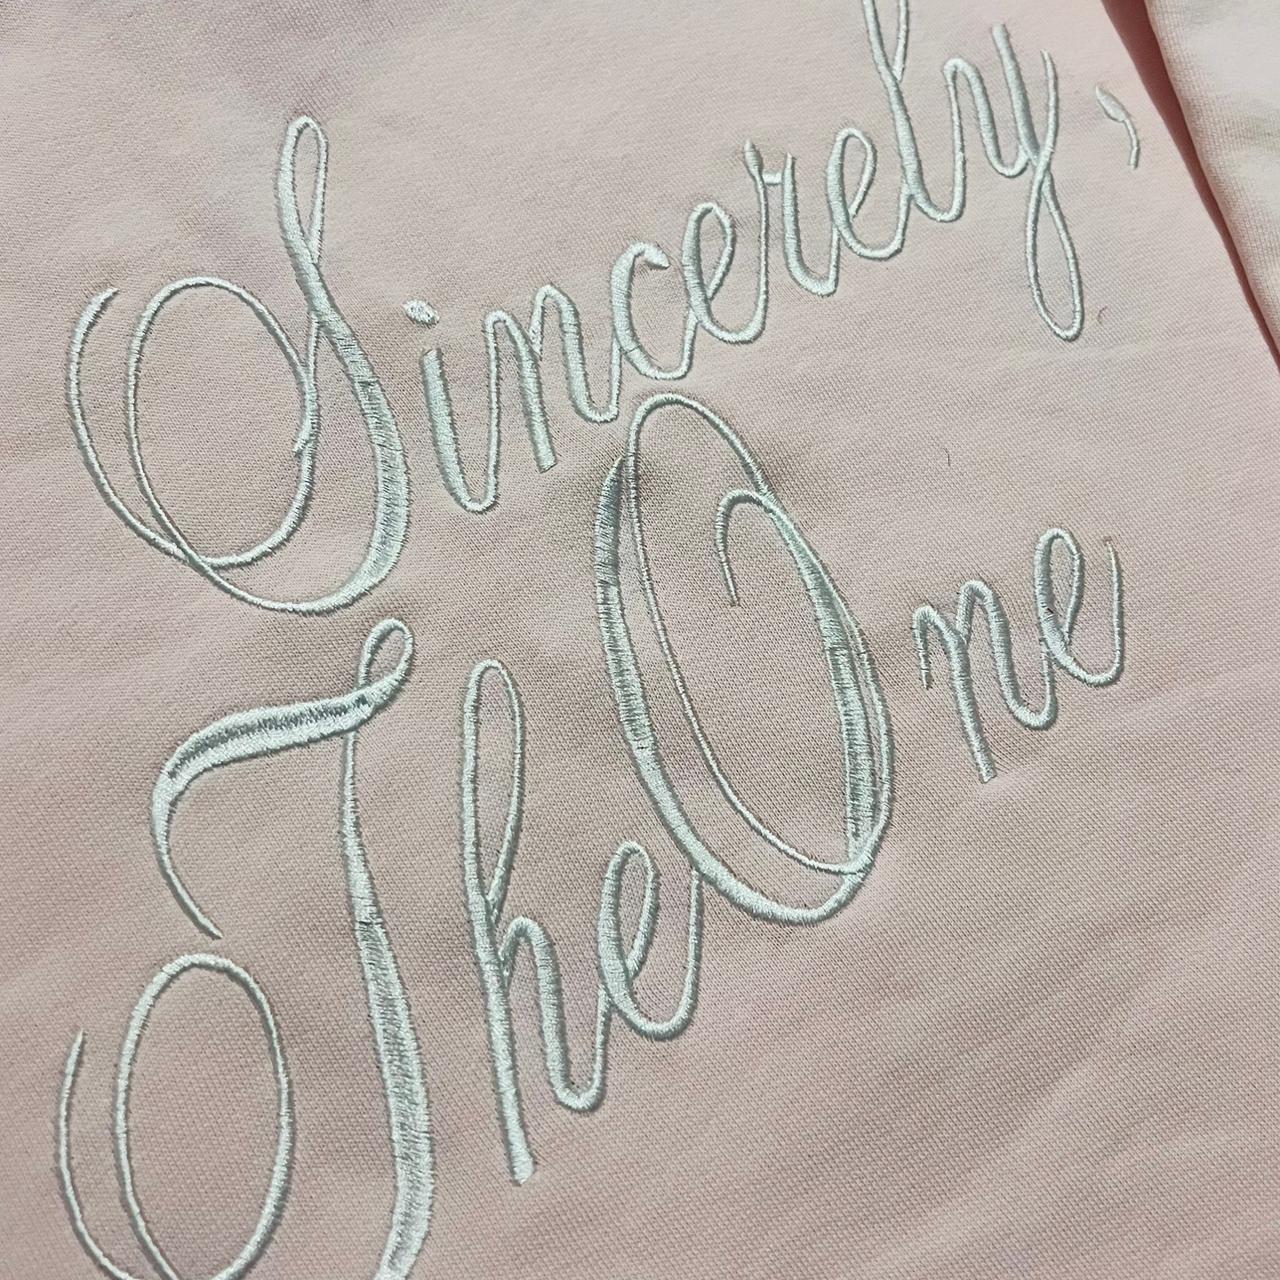 Sincerely,
The One